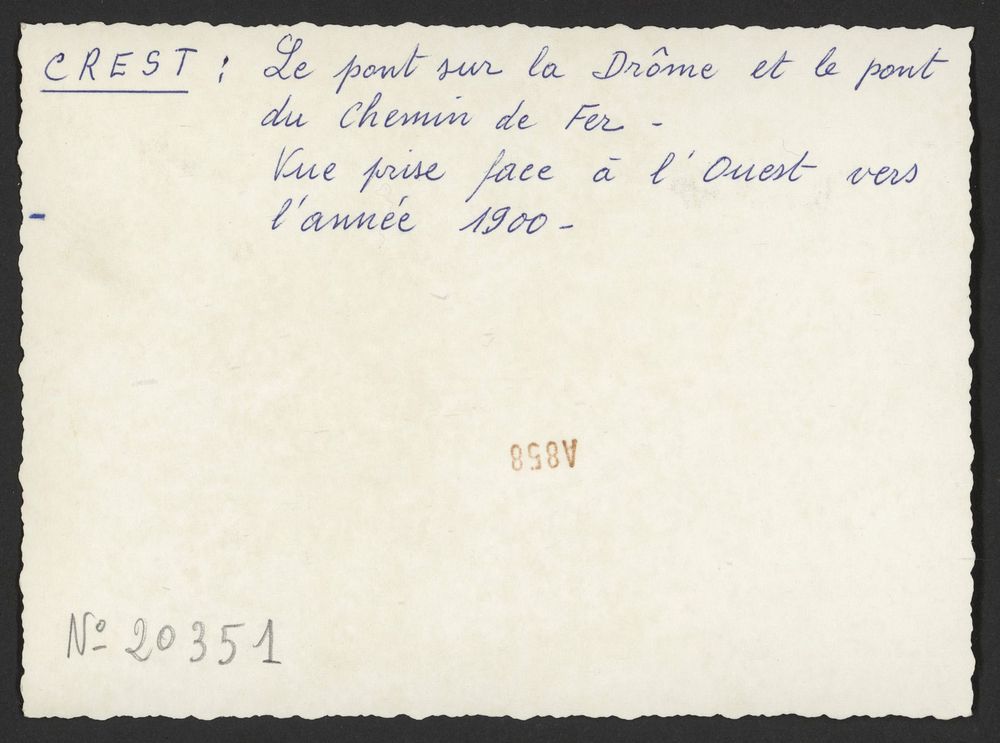 CREST : Le pont sur la Drôme et le pont
du Chemin de Fer -
Vue prise face à l'Ouest vers
l'année 1900 -
A858
No 20351